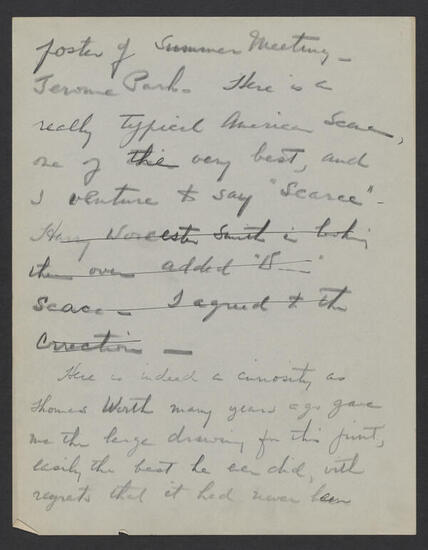 poster of Summer Meeting –
Jerome Park. Here is a
really typical American Scene,
one of the very best, and
I venture to say "Scarce" –
Harry Worcester Smith in looking
them over added "D––"
Scace – I agreed to the
Correction –
Here is indeed a curiosity as
Thomas Worth many years ago gave
me the large drawing for this print,
easily the best he ever did, with
regrets that it had never been